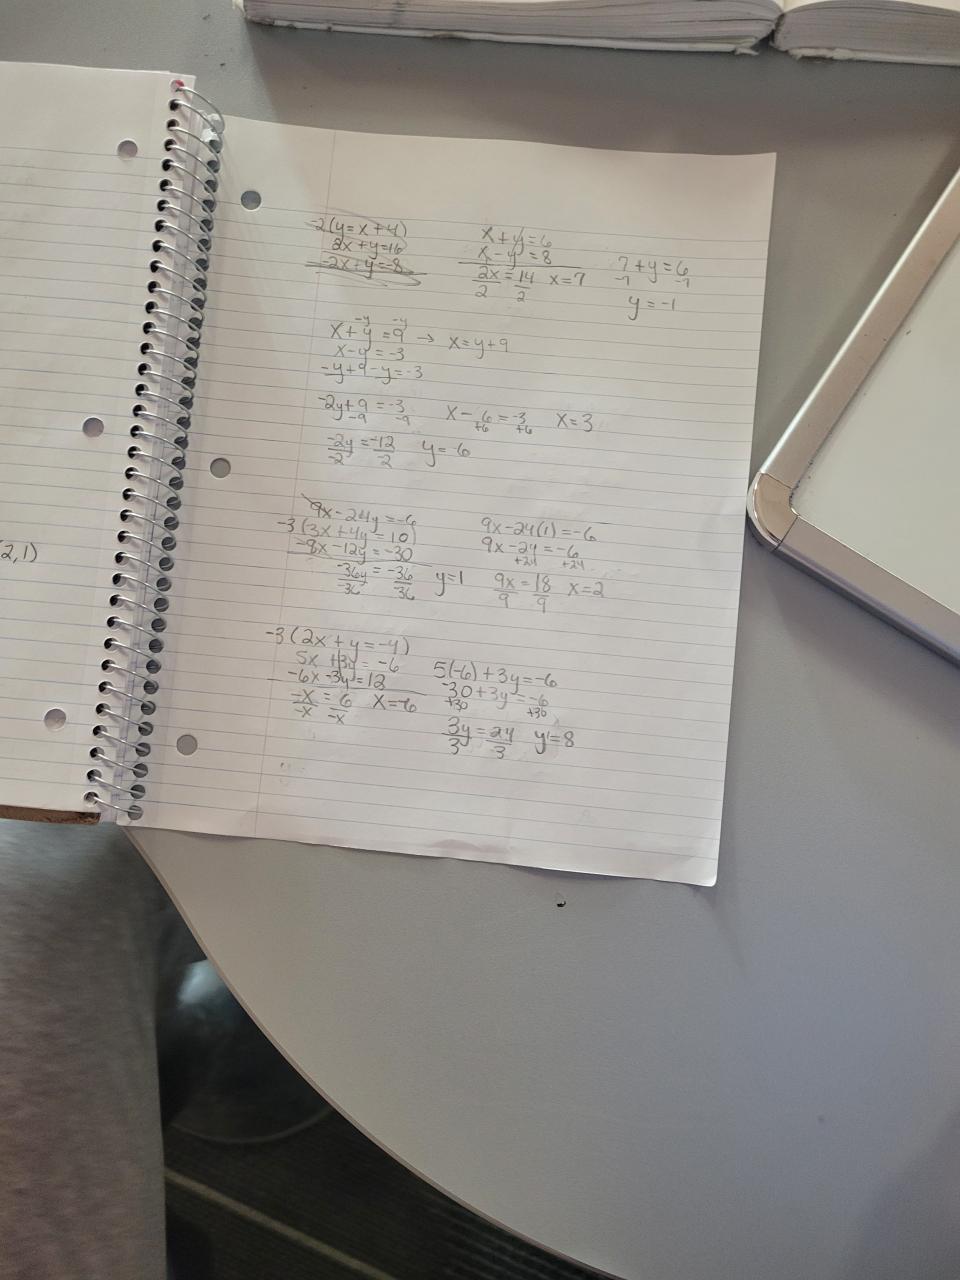 -2(y=x+4)
2x+y=16
-2x+y=-8
x+y=6
x-y=8
2x=14 x=7
2 2
7+y=6
-7 -7
y=-1
-y -y
x+y=9 → x=y+9
x-y=-3
-y+9-y=-3
-2y+9=-3
-9 -9
-2y=-12 y=-6
-2 -2
x-6=-3 x=3
+6 +6
9x-24y=-6
-3(3x+4y=10)
-9x-12y=-30
-36y=-36 y=1
-36 -36
9x-24(1)=-6
9x-24=-6
+24 +24
9x=18 x=2
9 9
-3(2x+y=-4)
5x+3y=-6
-6x-3y=12
-x=6 x=-6
-x -x
5(-6)+3y=-6
-30+3y=-6
+30 +30
3y=24 y=8
3 3
2,1)